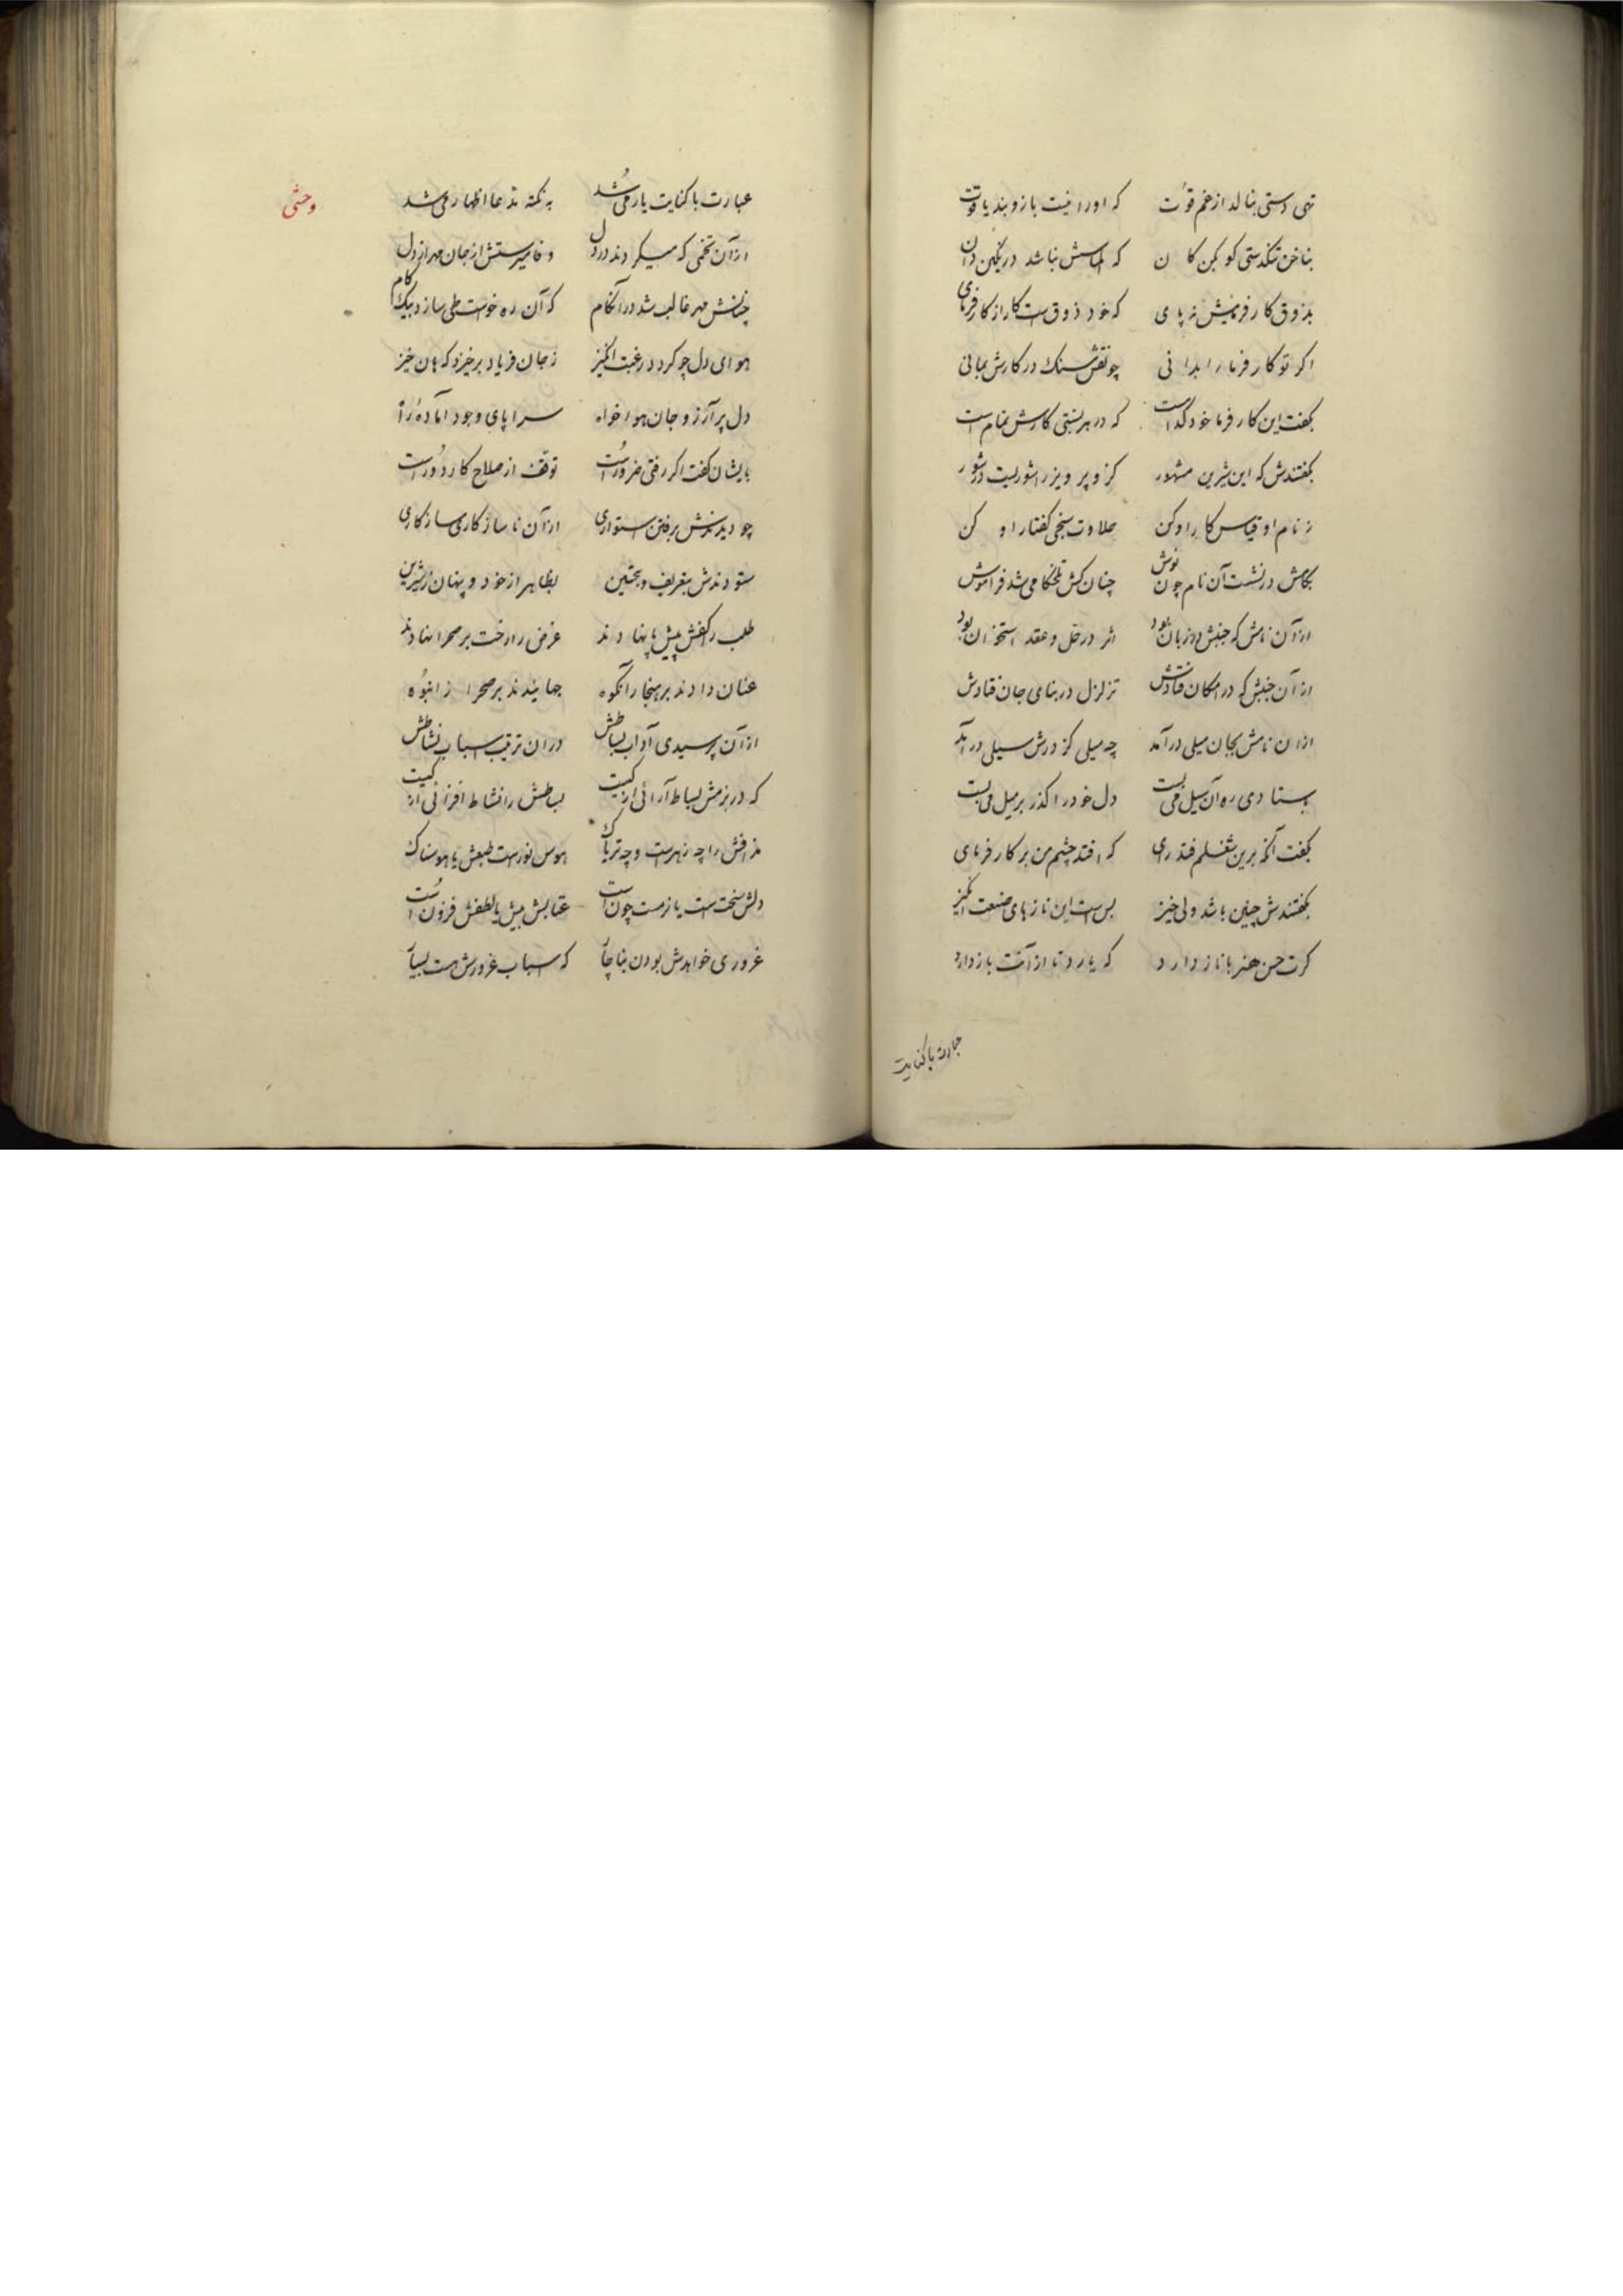 تهی دستی بنالد از غم قوت که او را نیست بازوبند یاقوت
بناخن تنگدستی گو بکن کان که الماسش نباشد در نگین دان
بذوق کارفرما پیش نه پای که خود ذوقست کار از کارفرمای
اگر تو کارفرما را بدانی چو نقش سنگ در کارش بمانی
بگفت این کارفرما خود کدامست که در هر نسبتی کارش تمامست
بگفتندش که این شیرین مشهور کزو پرویز را شوریست در شور
ز نام او قیاس کار او کن حلاوت سنجی گفتار او کن
بکامش در نشست آن نام چون نوش چنان کش تلخکامی شد فراموش
از آن نامش که جنبش در زبان بود اثر در حل و عقد استخوان بود
از آن جنبش که در ارکان فتادش تزلزل در بنای جان فتادش
از آن نامش بجان میلی درآمد چه میلی کز درش سیلی درآمد
ستادی ره آن سیل می بست دل خود را گذر بر میل می بست
بگفت آنکه برین شغلم فتد رای که افتد چشم من بر کارفرمای
بگفتندش چنین باشد ولی خیز بس است این نازهای صنعت انگیز
گرت حسن هنر با ناز دارد که یارد تا از آنت بازدارد
عبارت با کنایت
وحشی
عبارت با کنایت یار می شد به نکته مدعا اظهار می شد
از آن تخمی که میکردند در دل وفا میرستش از جان مهر از دل
چنانش مهر غالب شد در آن کام که آن ره خواست طی سازد بیک گام
هوای دل چو گردد رغبت انگیز ز جان فریاد برخیزد که هان خیز
دل پر آرزو و جان هواخواه سراپای وجود آماده راه
بایشان گفت اگر رفتن ضرورست توقف از صلاح کار دورست
چو دیدندش برفتن ستواری از آن ناسازگاری سازگاری
ستودندش بتعریف و بتحسین بظاهر از خود و پنهان ز شیرین
طلب را کفش پیش پا نهادند غرض را رخت بر صحرا نهادند
عنان دادند بر هنجار آن کوه جهانیدند بر صحرا ز انبوه
از آن پرسیدی آداب بساطش در آن ترتیب اسباب نشاطش
که در بزمش بساط آرائی از کیست بساطش را نشاط افزائی از کیست
مذاقش را چه زهرست و چه تریاک هوس نورست طبعش یا هوسناک
دلش سختست یا نرمست چونست عتابش بیش یا لطفش فزونست
غروری خواهدش بودن بناچار که اسباب غرورش هست بسیار